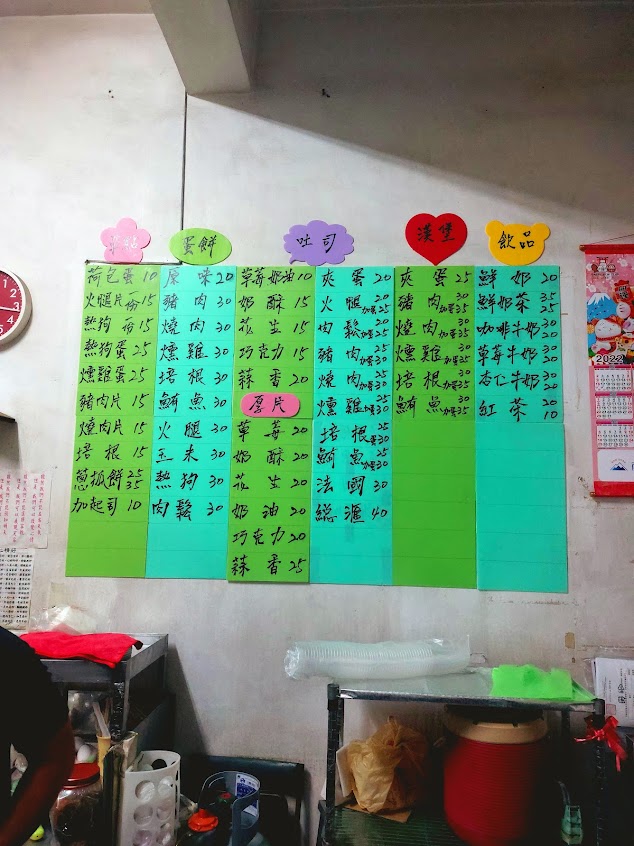 蛋餅
吐司
漢堡
飲品
荷包蛋 10
火腿片份 15
熱狗份 15
熱狗蛋 25
燻雞蛋 25
豬肉片 15
燒肉片 15
培根 15
蔥抓餅 25 35
加起司 10
原味 20
豬肉 30
燒肉 30
燻雞 30
培根 30
鮪魚 30
火腿 30
玉米 30
熱狗 30
肉鬆 30
草莓奶油 10
奶酥 15
花生 15
巧克力 15
蒜香 20
厚片
草莓 20
奶酥 20
花生 20
奶油 20
巧克力 20
蒜香 25
夾蛋 20
火腿 20 加蛋25
肉鬆 20 加蛋25
豬肉 25 加蛋30
燒肉 25 加蛋30
燻雞 25 加蛋30
培根 25 加蛋30
鮪魚 25 加蛋30
法國 30
總滙 40
夾蛋 25
豬肉 30 加蛋35
燒肉 30 加蛋35
燻雞 30 加蛋35
培根 30 加蛋35
鮪魚 30 加蛋35
鮮奶 20
鮮奶茶 35 25
咖啡牛奶 30 20
草莓牛奶 30 20
杏仁牛奶 30 20
紅茶 20 10
2022